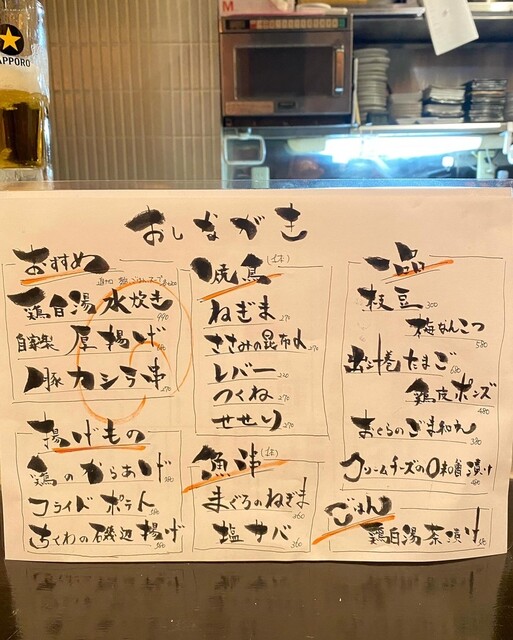 SAPPORO
M
おしながき
おすすめ
鶏白湯 水炊き 990
自家製 厚揚げ
豚カシラ串 270
揚げもの
鶏のからあげ 580
フライドポテト
ちくわの磯辺揚げ 380
焼鳥 (1本)
ねぎま 270
ささみの昆布〆 270
レバー 220
つくね 270
せせり 270
魚串 (1本)
まぐろのねぎま 360
塩サバ 360
一品
枝豆 300
梅なんこつ 380
出汁巻たまご 680
鶏皮ポンズ 480
おくらのごま和え 380
クリームチーズの味噌漬け 480
ごはん
鶏白湯茶漬け